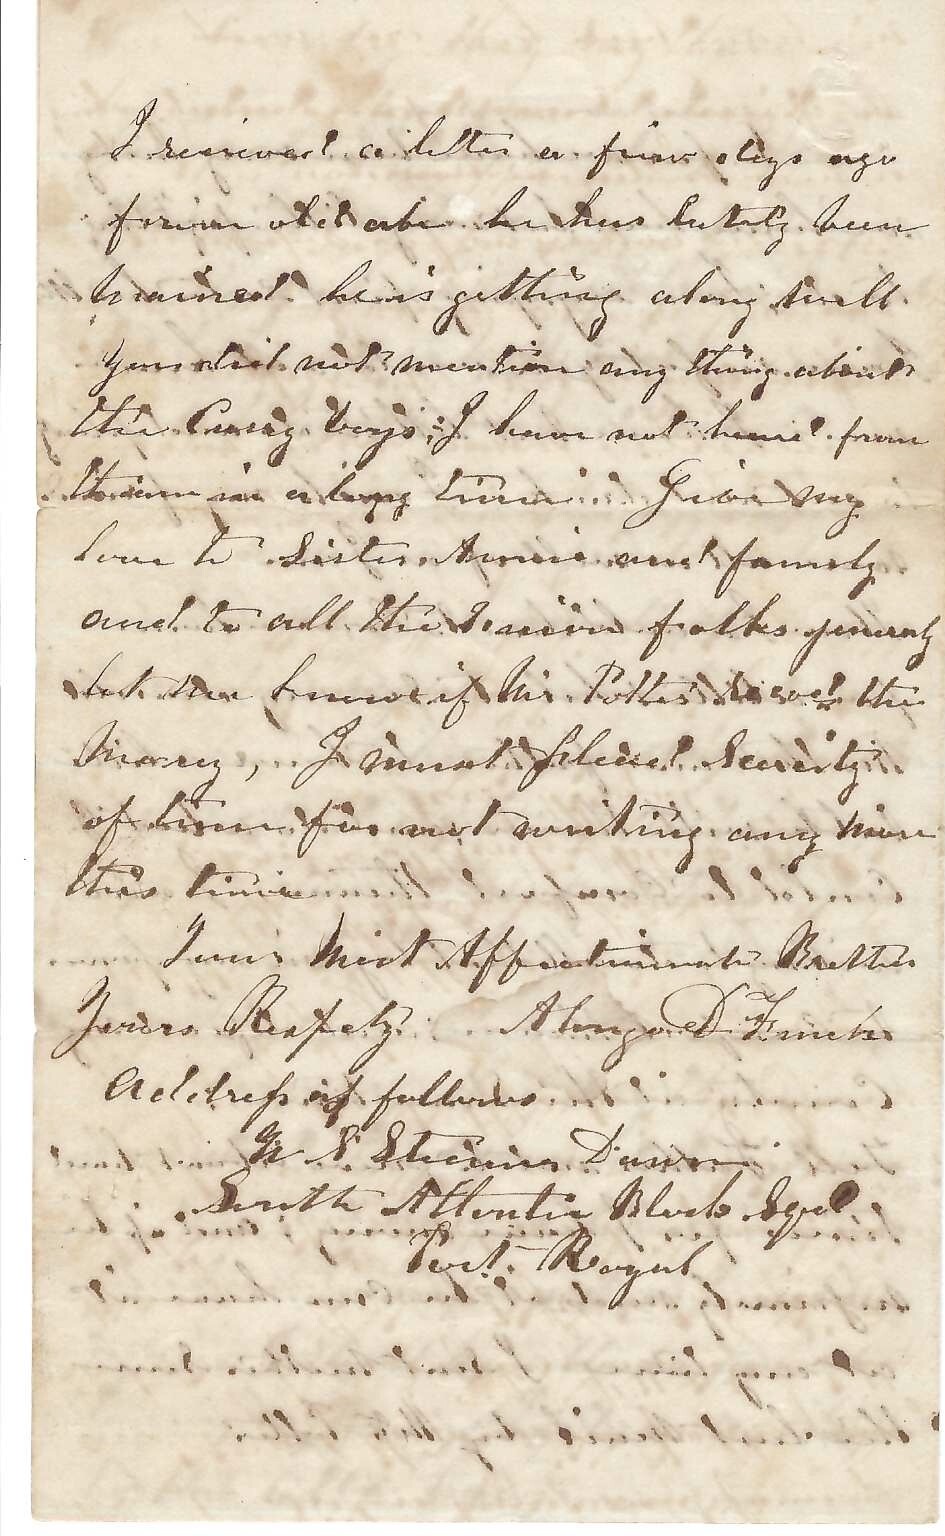 I received a letter a few days ago
from old abe he has lately been
he is getting along well
You did not mention any thing about
the boys; I have not heard from
them in a long time Give my
love to Sister Annie and family
and to all the folks generly
let me know if Mr. Potter the
Money, I must plead
of time for not writing any more
this time
Your Most Affectionate Brother
Yours Respctly Alonzo D French
Address as follows
U S Steamer Dawn
South Atlantic Block Sqd
Port Royal